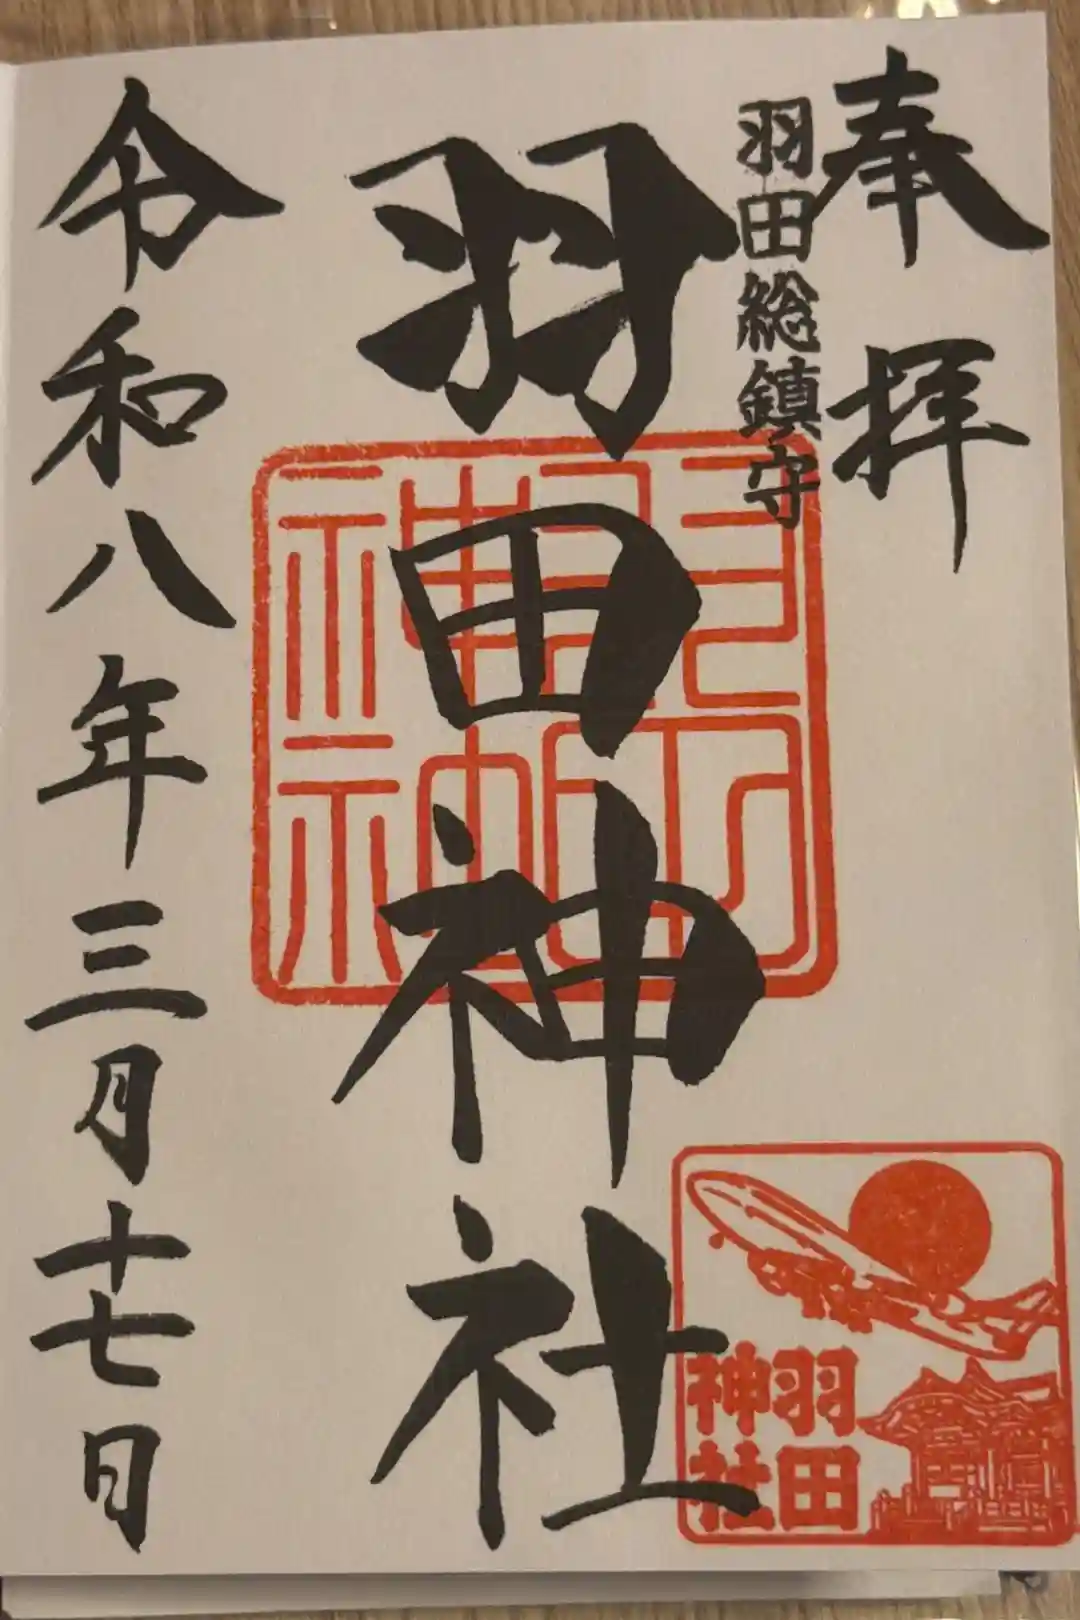 奉拝
羽田総鎮守
羽田神社
令和八年三月十七日
羽田
神社